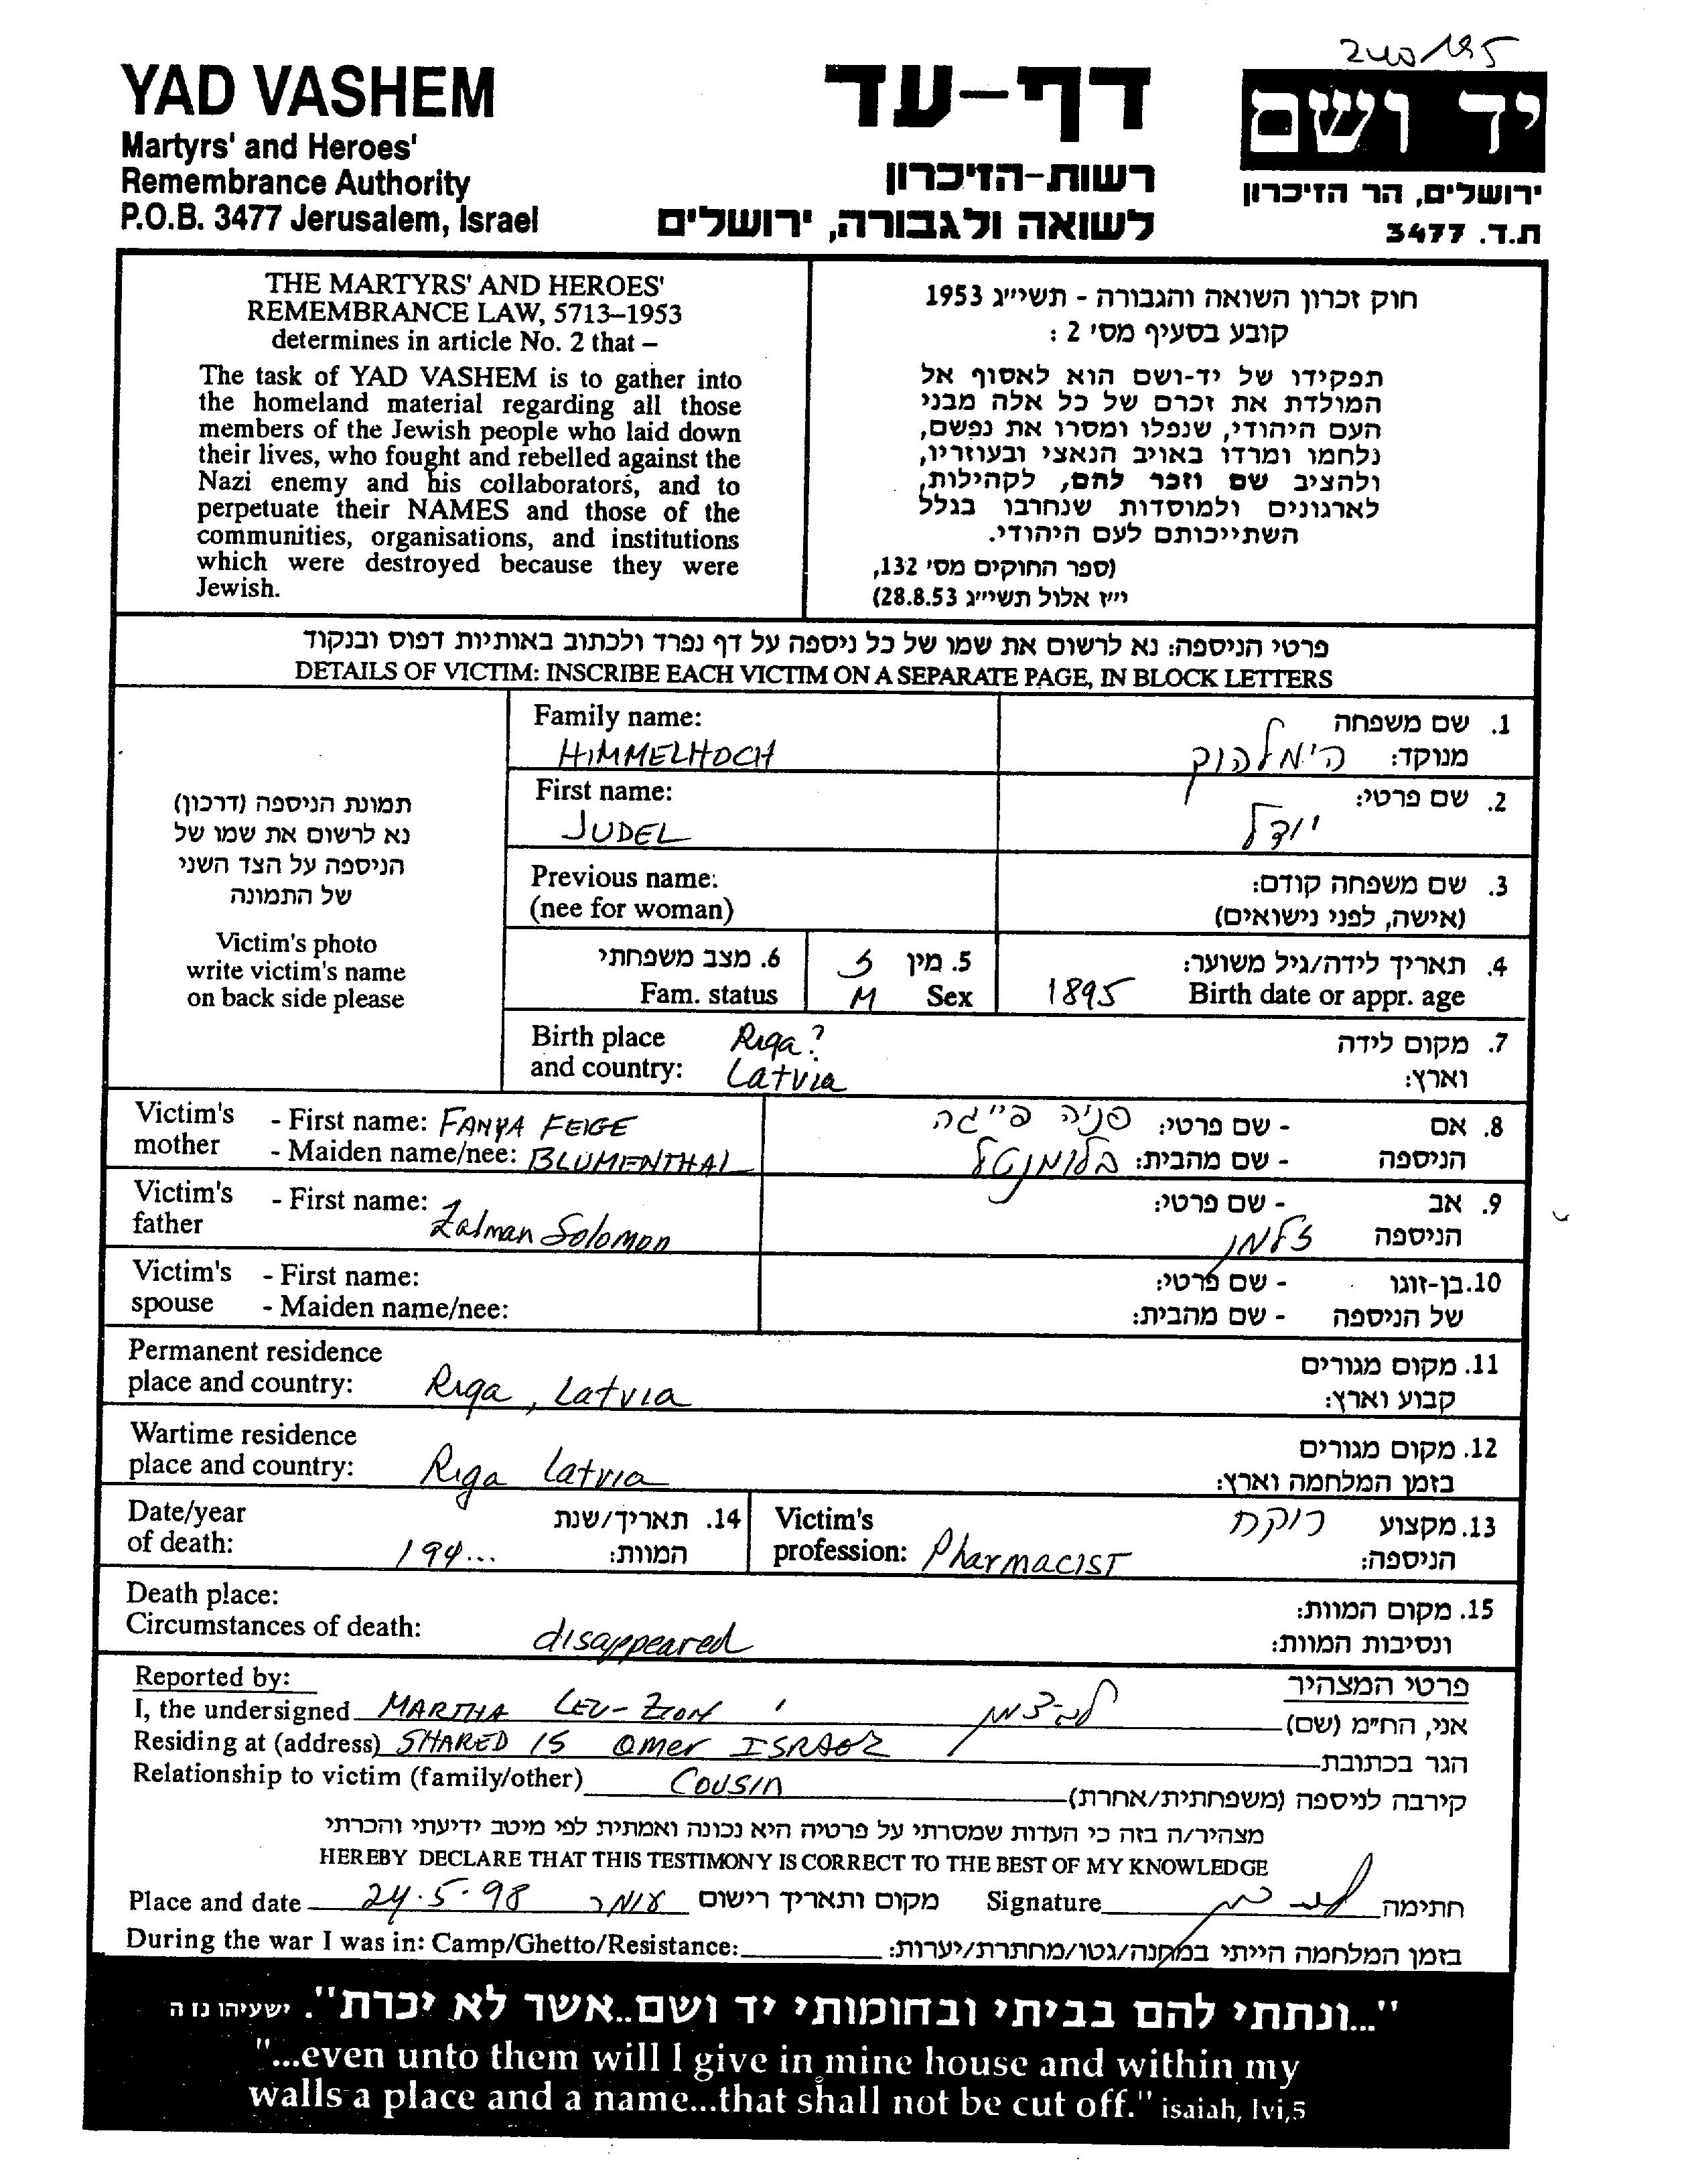 YAD VASHEM
Martyrs' and Heroes'
Remembrance Authority
P.O.B. 3477 Jerusalem, Israel
דף-עד
רשות-הזיכרון
לשואה ולגבורה, ירושלים
יד ושם
ירושלים, הר הזיכרון
ת.ד. 3477
THE MARTYRS' AND HEROES'
REMEMBRANCE LAW, 5713–1953
determines in article No. 2 that –
The task of YAD VASHEM is to gather into
the homeland material regarding all those
members of the Jewish people who laid down
their lives, who fought and rebelled against the
Nazi enemy and his collaborators, and to
perpetuate their NAMES and those of the
communities, organisations, and institutions
which were destroyed because they were
Jewish.
חוק זכרון השואה והגבורה - תשי״ג 1953
קובע בסעיף מס' 2 :
תפקידו של יד-ושם הוא לאסוף אל
המולדת את זכרם של כל אלה מבני
העם היהודי, שנפלו ומסרו את נפשם,
נלחמו ומרדו באויב הנאצי ובעוזריו,
ולהציב שם וזכר להם, לקהילות,
לארגונים ולמוסדות שנחרבו בגלל
השתייכותם לעם היהודי.
(ספר החוקים מס' 132,
י״ז אלול תשי״ג 28.8.53)
פרטי הניספה: נא לרשום את שמו של כל ניספה על דף נפרד ולכתוב באותיות דפוס ובנקוד
DETAILS OF VICTIM: INSCRIBE EACH VICTIM ON A SEPARATE PAGE, IN BLOCK LETTERS
תמונת הניספה (דרכון)
נא לרשום את שמו של
הניספה על הצד השני
של התמונה
Victim's photo
write victim's name
on back side please
Family name:
HIMMELHOCH
1. שם משפחה
מנוקד: הימלהוק
First name:
JUDEL
2. שם פרטי:
יודל
Previous name:
(nee for woman)
3. שם משפחה קודם:
(אישה, לפני נישואים)
6. מצב משפחתי
Fam. status
5. מין ז
M Sex
4. תאריך לידה/גיל משוער:
1895 Birth date or appr. age
Birth place Riga?
and country: Latvia
7. מקום לידה
וארץ:
Victim's - First name: FANYA FEIGE
mother - Maiden name/nee: BLUMENTHAL
8. אם - שם פרטי: פניה פייגה
הניספה - שם מהבית: בלומנטל
Victim's - First name:
father Zalman Solomon
9. אב - שם פרטי:
הניספה זלמן
Victim's - First name:
spouse - Maiden name/nee:
10. בן-זוגו - שם פרטי:
של הניספה - שם מהבית:
Permanent residence
place and country: Riga, Latvia
11. מקום מגורים
קבוע וארץ:
Wartime residence
place and country: Riga Latvia
12. מקום מגורים
בזמן המלחמה וארץ:
Date/year
of death: 194...
14. תאריך/שנת
המוות:
Victim's
profession: Pharmacist
13. מקצוע רוקח
הניספה:
Death place:
Circumstances of death: disappeared
15. מקום המוות:
ונסיבות המוות:
Reported by:
פרטי המצהיר
I, the undersigned MARTHA LEV-ZION
אני, הח״מ (שם)
Residing at (address) SHAKED 15 Omer ISRAEL
הגר בכתובת
Relationship to victim (family/other) Cousin
קירבה לניספה (משפחתית/אחרת)
מצהיר/ה בזה כי העדות שמסרתי על פרטיה היא נכונה ואמתית לפי מיטב ידיעתי והכרתי
HEREBY DECLARE THAT THIS TESTIMONY IS CORRECT TO THE BEST OF MY KNOWLEDGE
Place and date 24.5.98 עומר מקום ותאריך רישום Signature חתימה
During the war I was in: Camp/Ghetto/Resistance: בזמן המלחמה הייתי במחנה/גטו/מחתרת/יערות:
"...ונתתי להם בביתי ובחומותי יד ושם..אשר לא יכרת". ישעיהו נז ה
"...even unto them will I give in mine house and within my
walls a place and a name...that shall not be cut off." isaiah, lvi,5